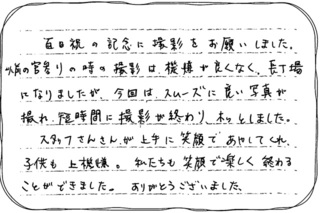 百日祝の記念に撮影をお願いしました。
の宮参りの時の撮影は機嫌が良くなく、長丁場
になりましたが、今回はスムーズに良い写真が
撮れ、短時間に撮影が終わり、ホッとしました。
スタッフさんさんが上手に笑顔であやしてくれ、
子供も上機嫌。私たちも笑顔で楽しく終わる
ことができました。ありがとうございました。